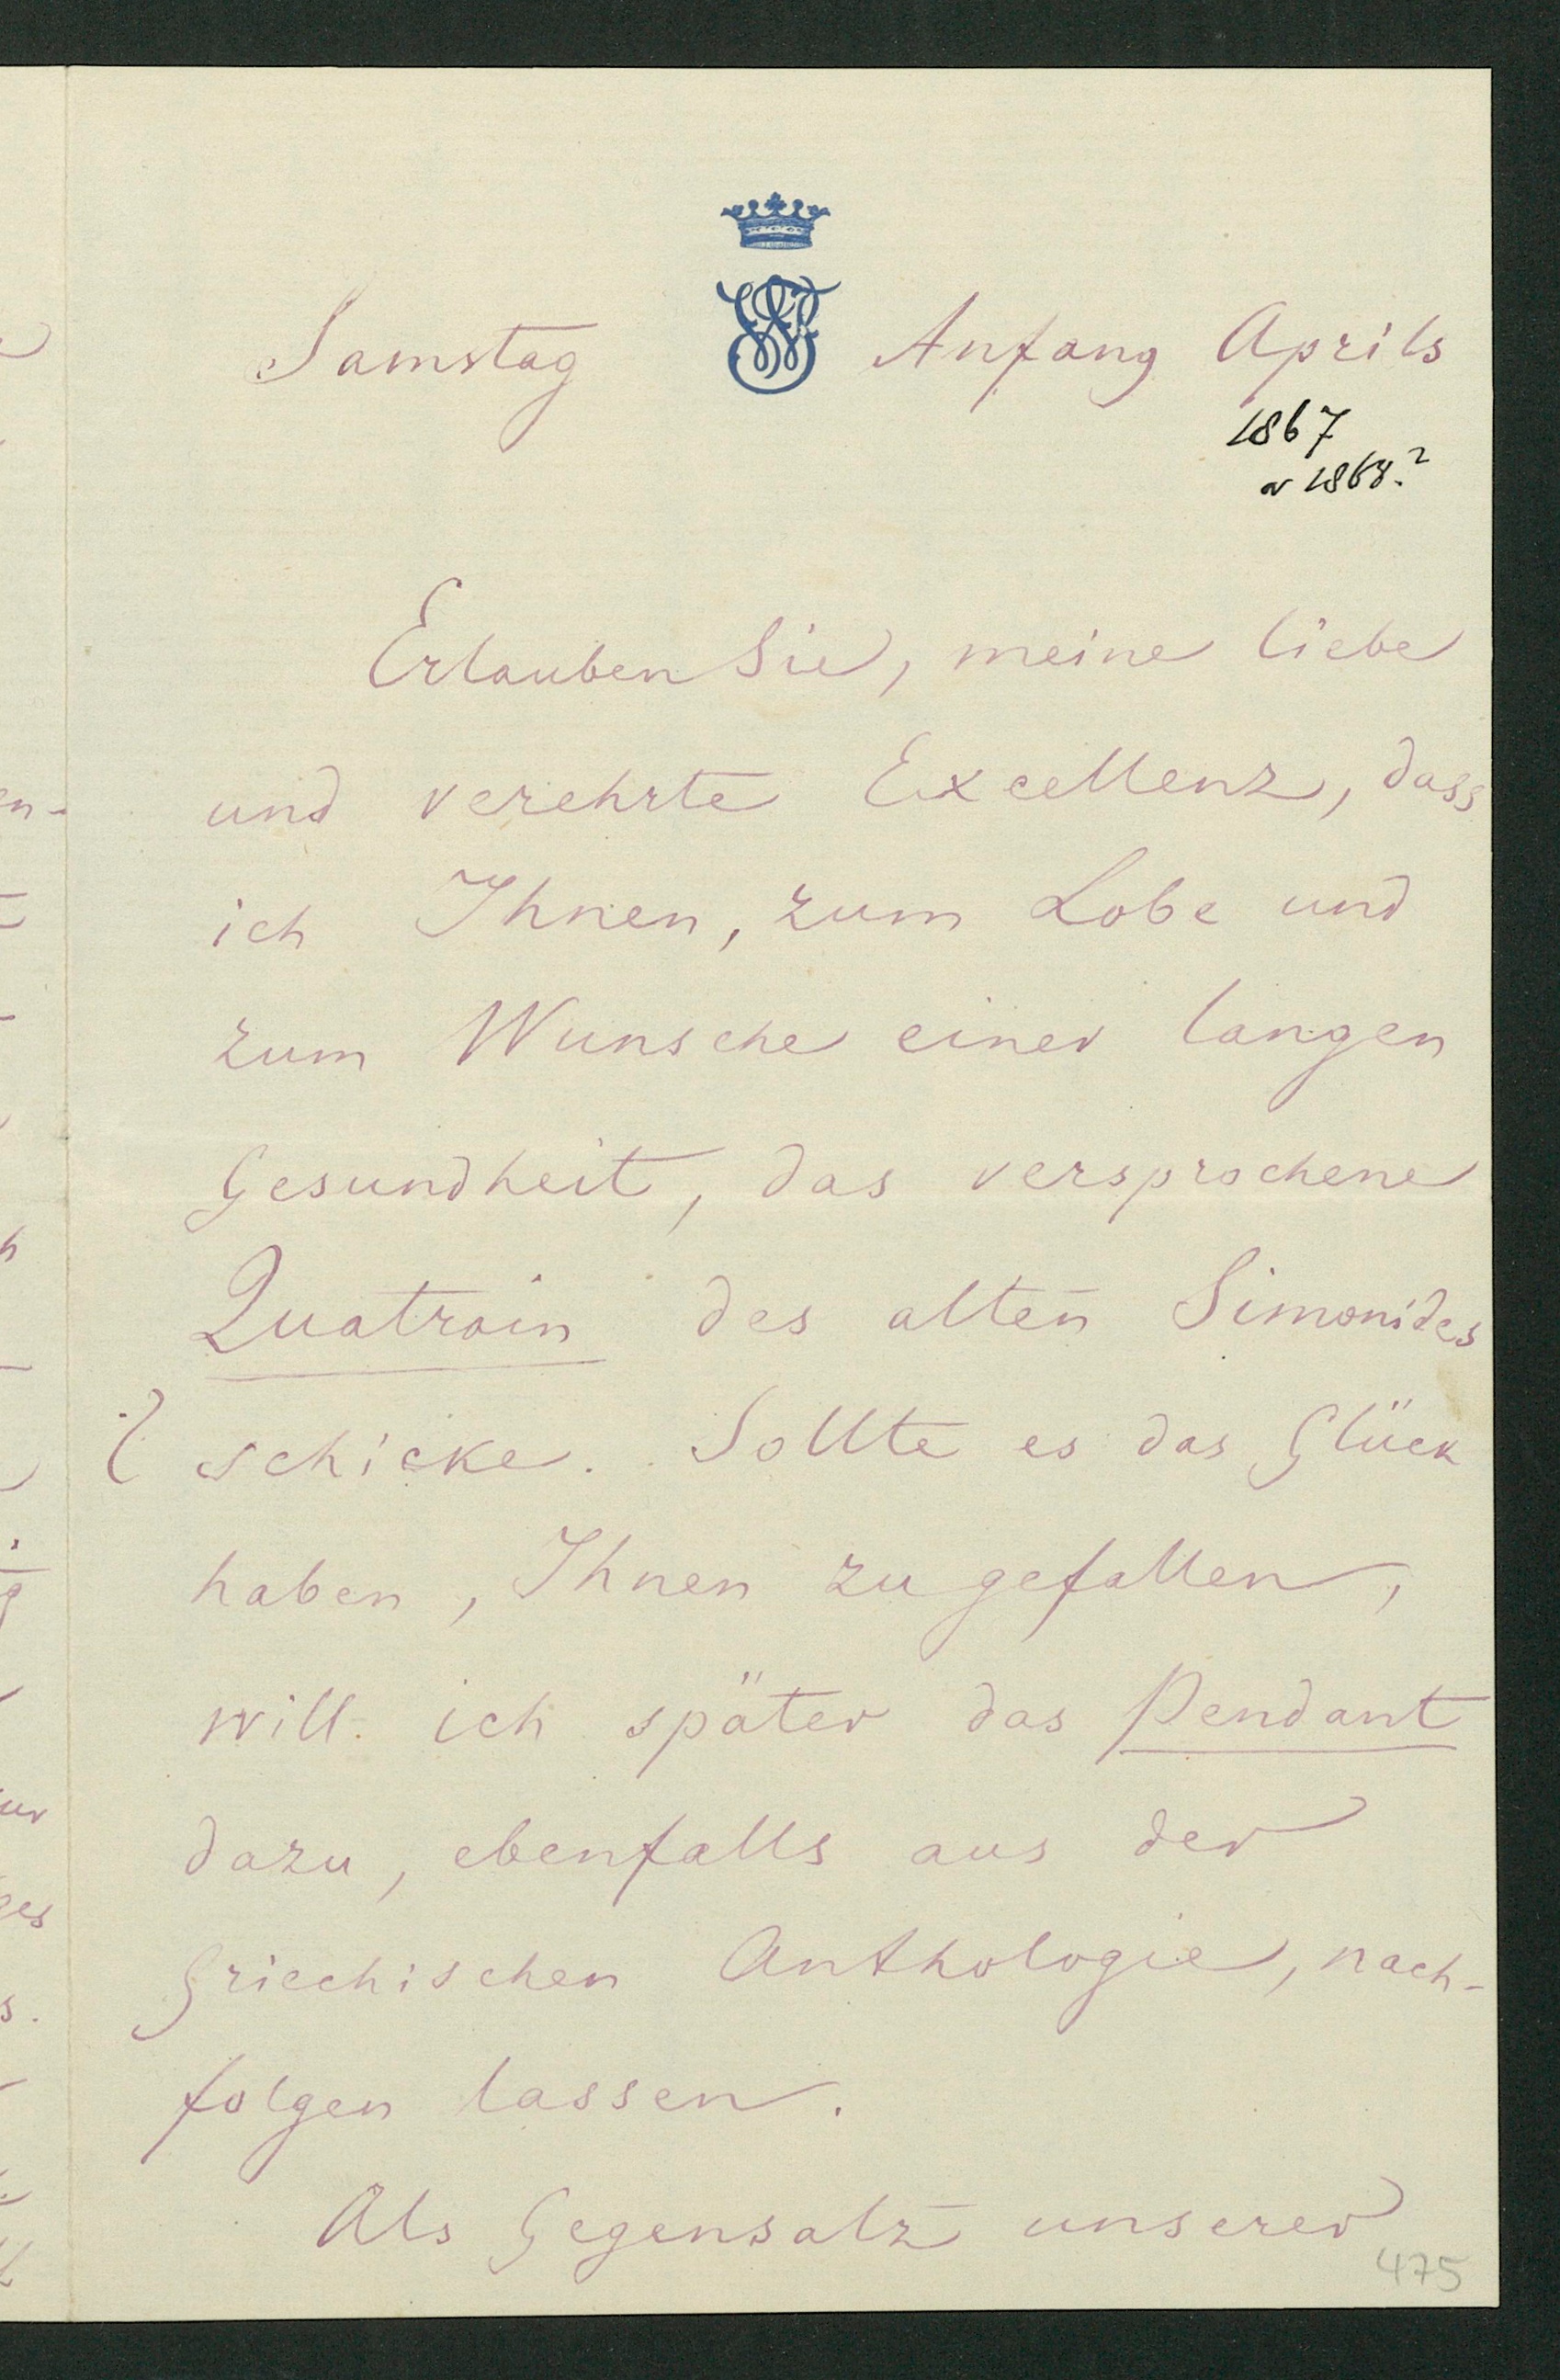 Samstag Anfang Aprils
1867
or 1868?
Erlauben Sie, meine liebe
und verehrte Excellenz, dass
ich Ihnen, zum Lobe und
zum Wunsche einer langen
Gesundheit, das versprochene
Quatrain des alten Simonides
schicke. Sollte es das Glück
haben, Ihnen zu gefallen,
will ich später das Pendant
dazu, ebenfalls aus der
Griechischen Anthologie, nach-
folgen lassen.
Als Gegensatz unserer
475